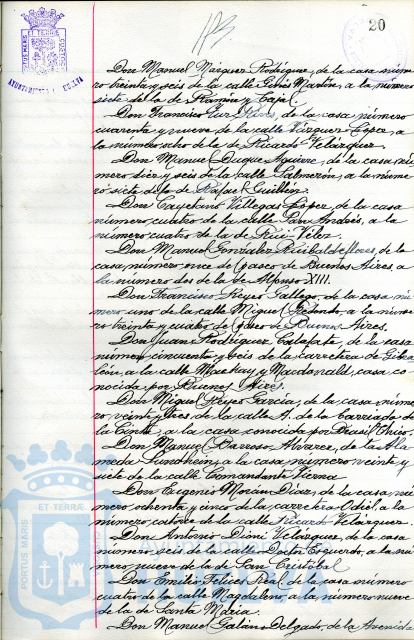 PORTUS MARIS
ET TERRÆ
CUSTOS
AYUNTAMIENTO
20
Don Manuel Márquez Rodríguez, de la casa núme
ro treinta y seis de la calle Ginés Martín, a la número
siete de la de Ramón y Cajal.
Don Francisco de la casa número
cuarenta y nueve de la calle Vázquez López, a
la número ocho de la de Ricardo Velázquez.
Don Manuel Duque Aguirre, de la casa nú
mero diez y seis de la calle Salmerón, a la núme
ro siete dpdo de Rafael Guillén.
Don Cayetano Villegas López, de la casa
número cuatro de la calle San Andrés, a la
número cuatro de la de Rui-Vélez.
Don Manuel González de la
casa número once de paseo de Buenos Aires a
la número dos de la de Alfonso XIII.
Don Francisco Reyes Gallego, de la casa nú
mero uno de la calle Miguel Redondo, a la núme
ro treinta y cuatro de paseo de Buenos Aires.
Don Juan Rodríguez Calafate, de la casa
número cincuenta y seis de la carretera de Gibra
león, a la calle Mackay y Macdonald, casa co
nocida por Buenos Aires.
Don Miguel Reyes García, de la casa núme
ro veinte y tres de la calle A. de la Barriada de
la Cinta, a la casa conocida por Brasil Chico.
Don Manuel Barroso Álvarez, de la Ala
meda Sundheim, a la casa número veinte y
siete de la calle Comandante
Don Eugenio Morán Díaz, de la casa nú
mero ochenta y cinco de la carrechera Odiel, a la
número catorce de la calle Ricardo Velázquez.
Don Antonio Velázquez, de la casa
número seis de la calle Doctor Esquerdo, a la nú
mero nueve de la de San Cristóbal
Don Emilio Felices Real, de la casa número
cuatro de la calle Magdalena, a la número nueve
de la de Santa María.
Don Manuel Galiano Delgado, de la Avenida
PORTUS MARIS
ET TERRÆ